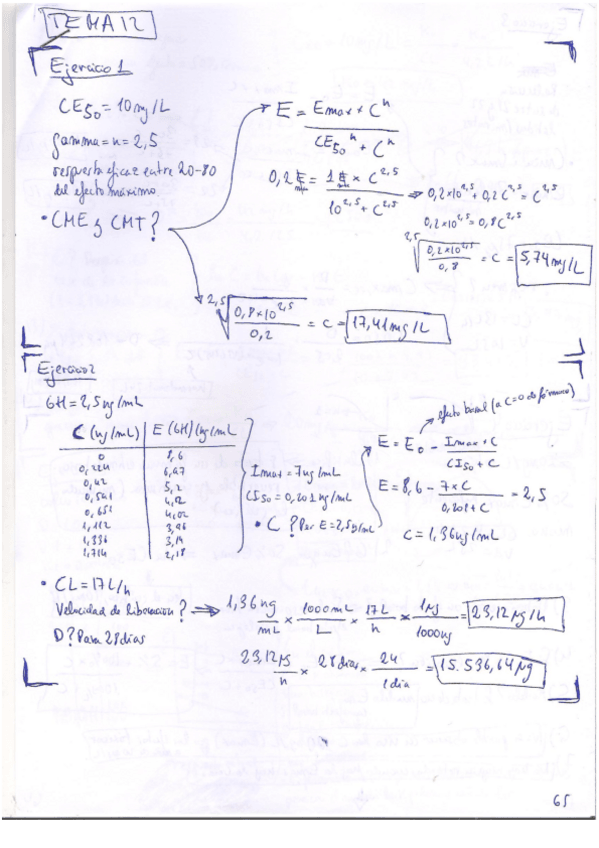 TEMA 12
Ejercicio 1
CE50 = 10 mg/L
gamma = n = 2,5
respuesta eficaz entre 20-80
del efecto máximo
• CME y CMT?
E = Emax × C^n / CE50^n + C^n
0,2 E = 1 E × C^2,5 / 10^2,5 + C^2,5 ⇒ 0,2×10^2,5 + 0,2 C^2,5 = C^2,5
0,2×10^2,5 = 0,8 C^2,5
2,5√ 0,2×10^2,5 / 0,8 = C = 5,74 mg/L
2,5√ 0,8×10^2,5 / 0,2 = C = 17,41 mg/L
Ejercicio 2
GH = 2,5 ng/mL
C (ng/mL) E (GH) (ng/mL)
0 8,6
0,224 6,97
0,42 5,2
0,541
0,651 4,02
1,112 3,96
1,336 3,14
1,714 2,18
Imax = 7 ng/mL
CI50 = 0,202 ng/mL
• C? Para E = 2,5 ng/mL
efecto basal (a C=0 de fármaco)
E = E0 - Imax × C / CI50 + C
E = 8,6 - 7 × C / 0,202 + C = 2,5
C = 1,36 ng/mL
• CL = 17 L/h
Velocidad de liberación?
D? Para 28 días
1,36 ng / mL × 1000 mL / L × 17 L / h × 1 µg / 1000 ng = 23,12 µg/h
23,12 µg / h × 28 días × 24 / 1 día = 15.536,64 µg
65